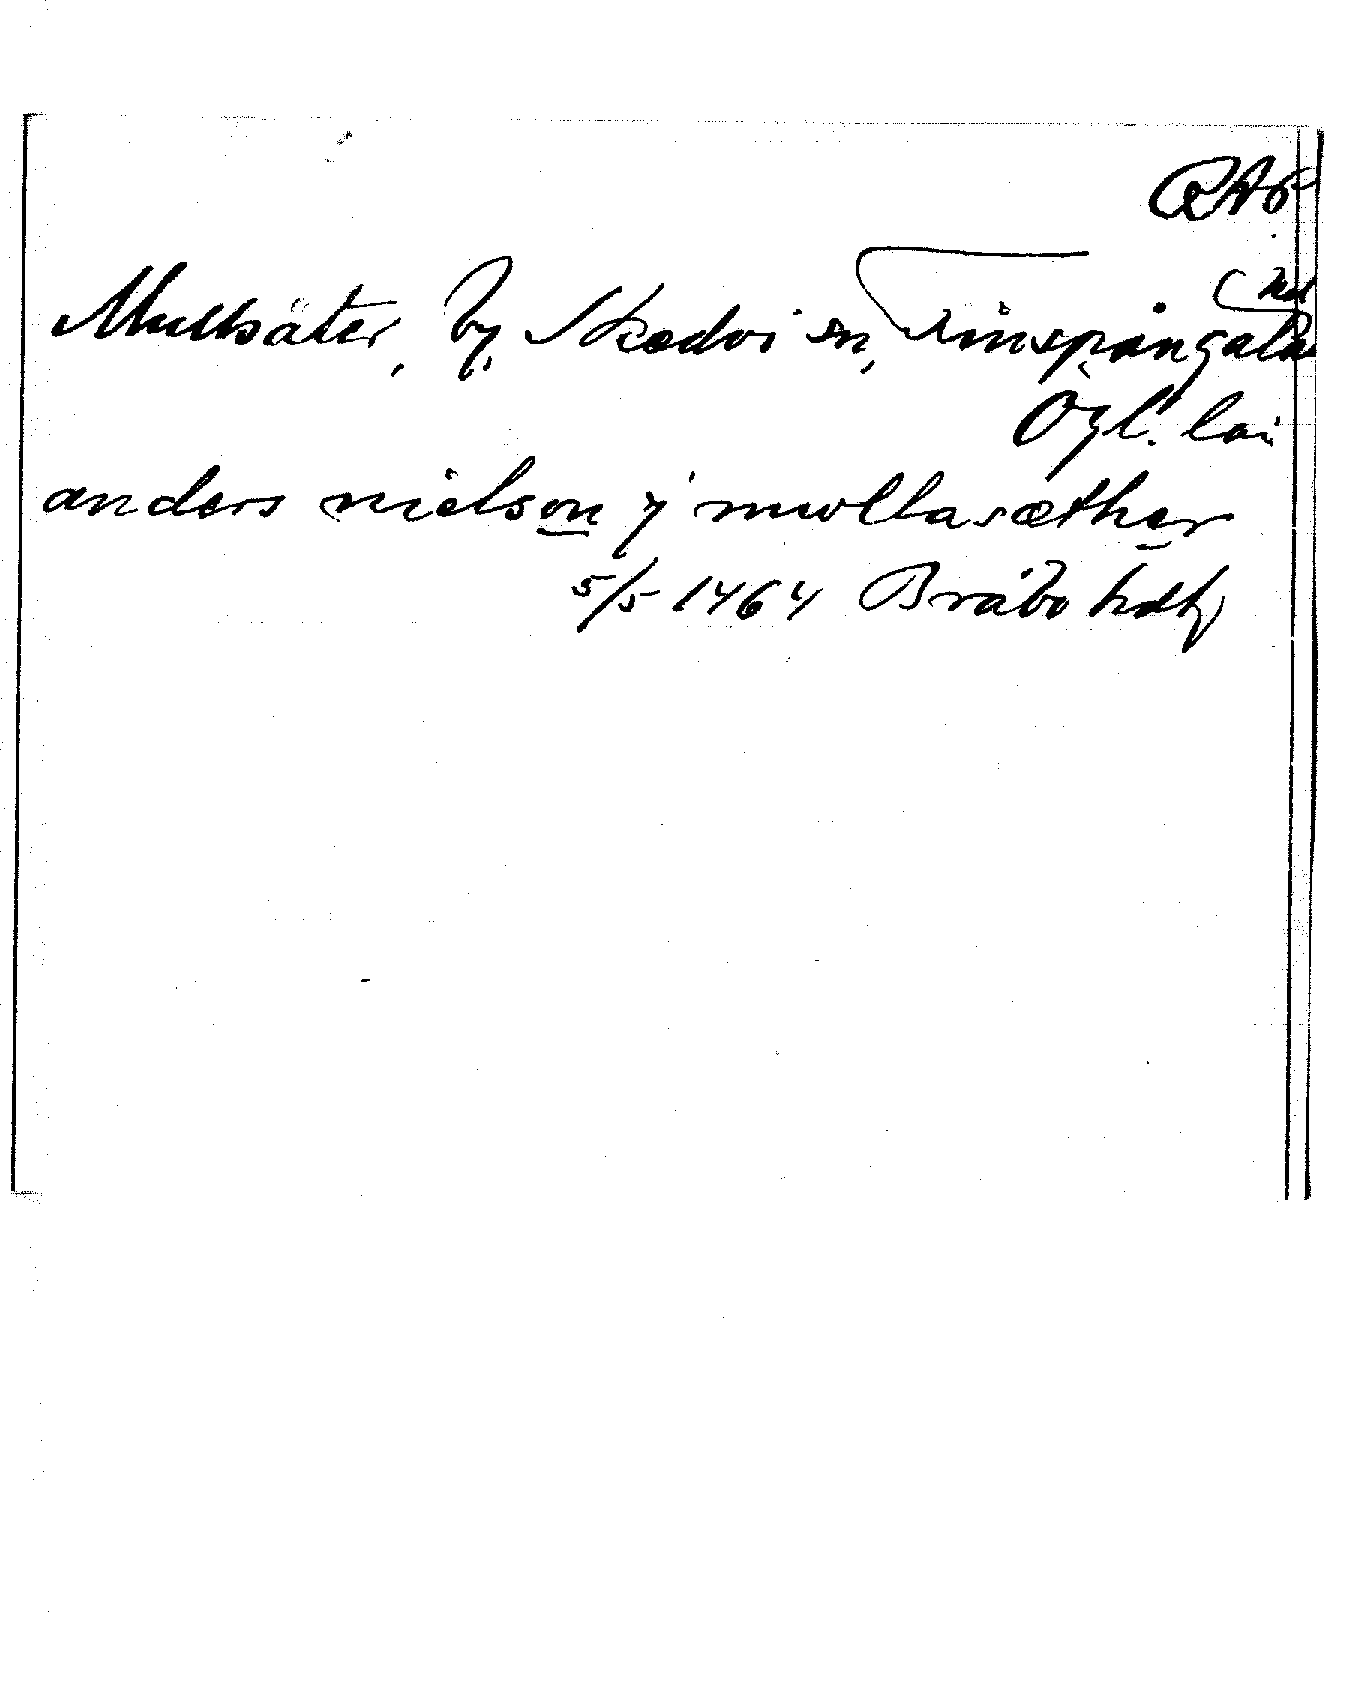 RAö
Mullsäter, by, Skedvi sn, Finspångaläns hd
Ögl. län
anders nielson j mwllasæther
5/5 1464 Bråbo hdg